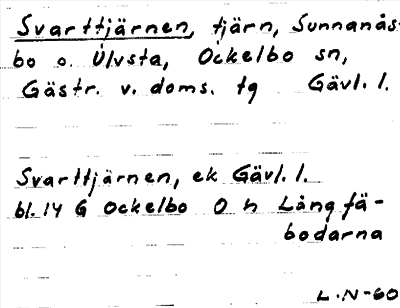 Svarttjärnen, tjärn, Sunnanås-
bo o. Ulvsta, Ockelbo sn,
Gästr. v. doms. tg Gävl. l.
Svarttjärnen, ek Gävl. l.
bl. 14 G Ockelbo O n Långfä-
bodarna
L.N-60